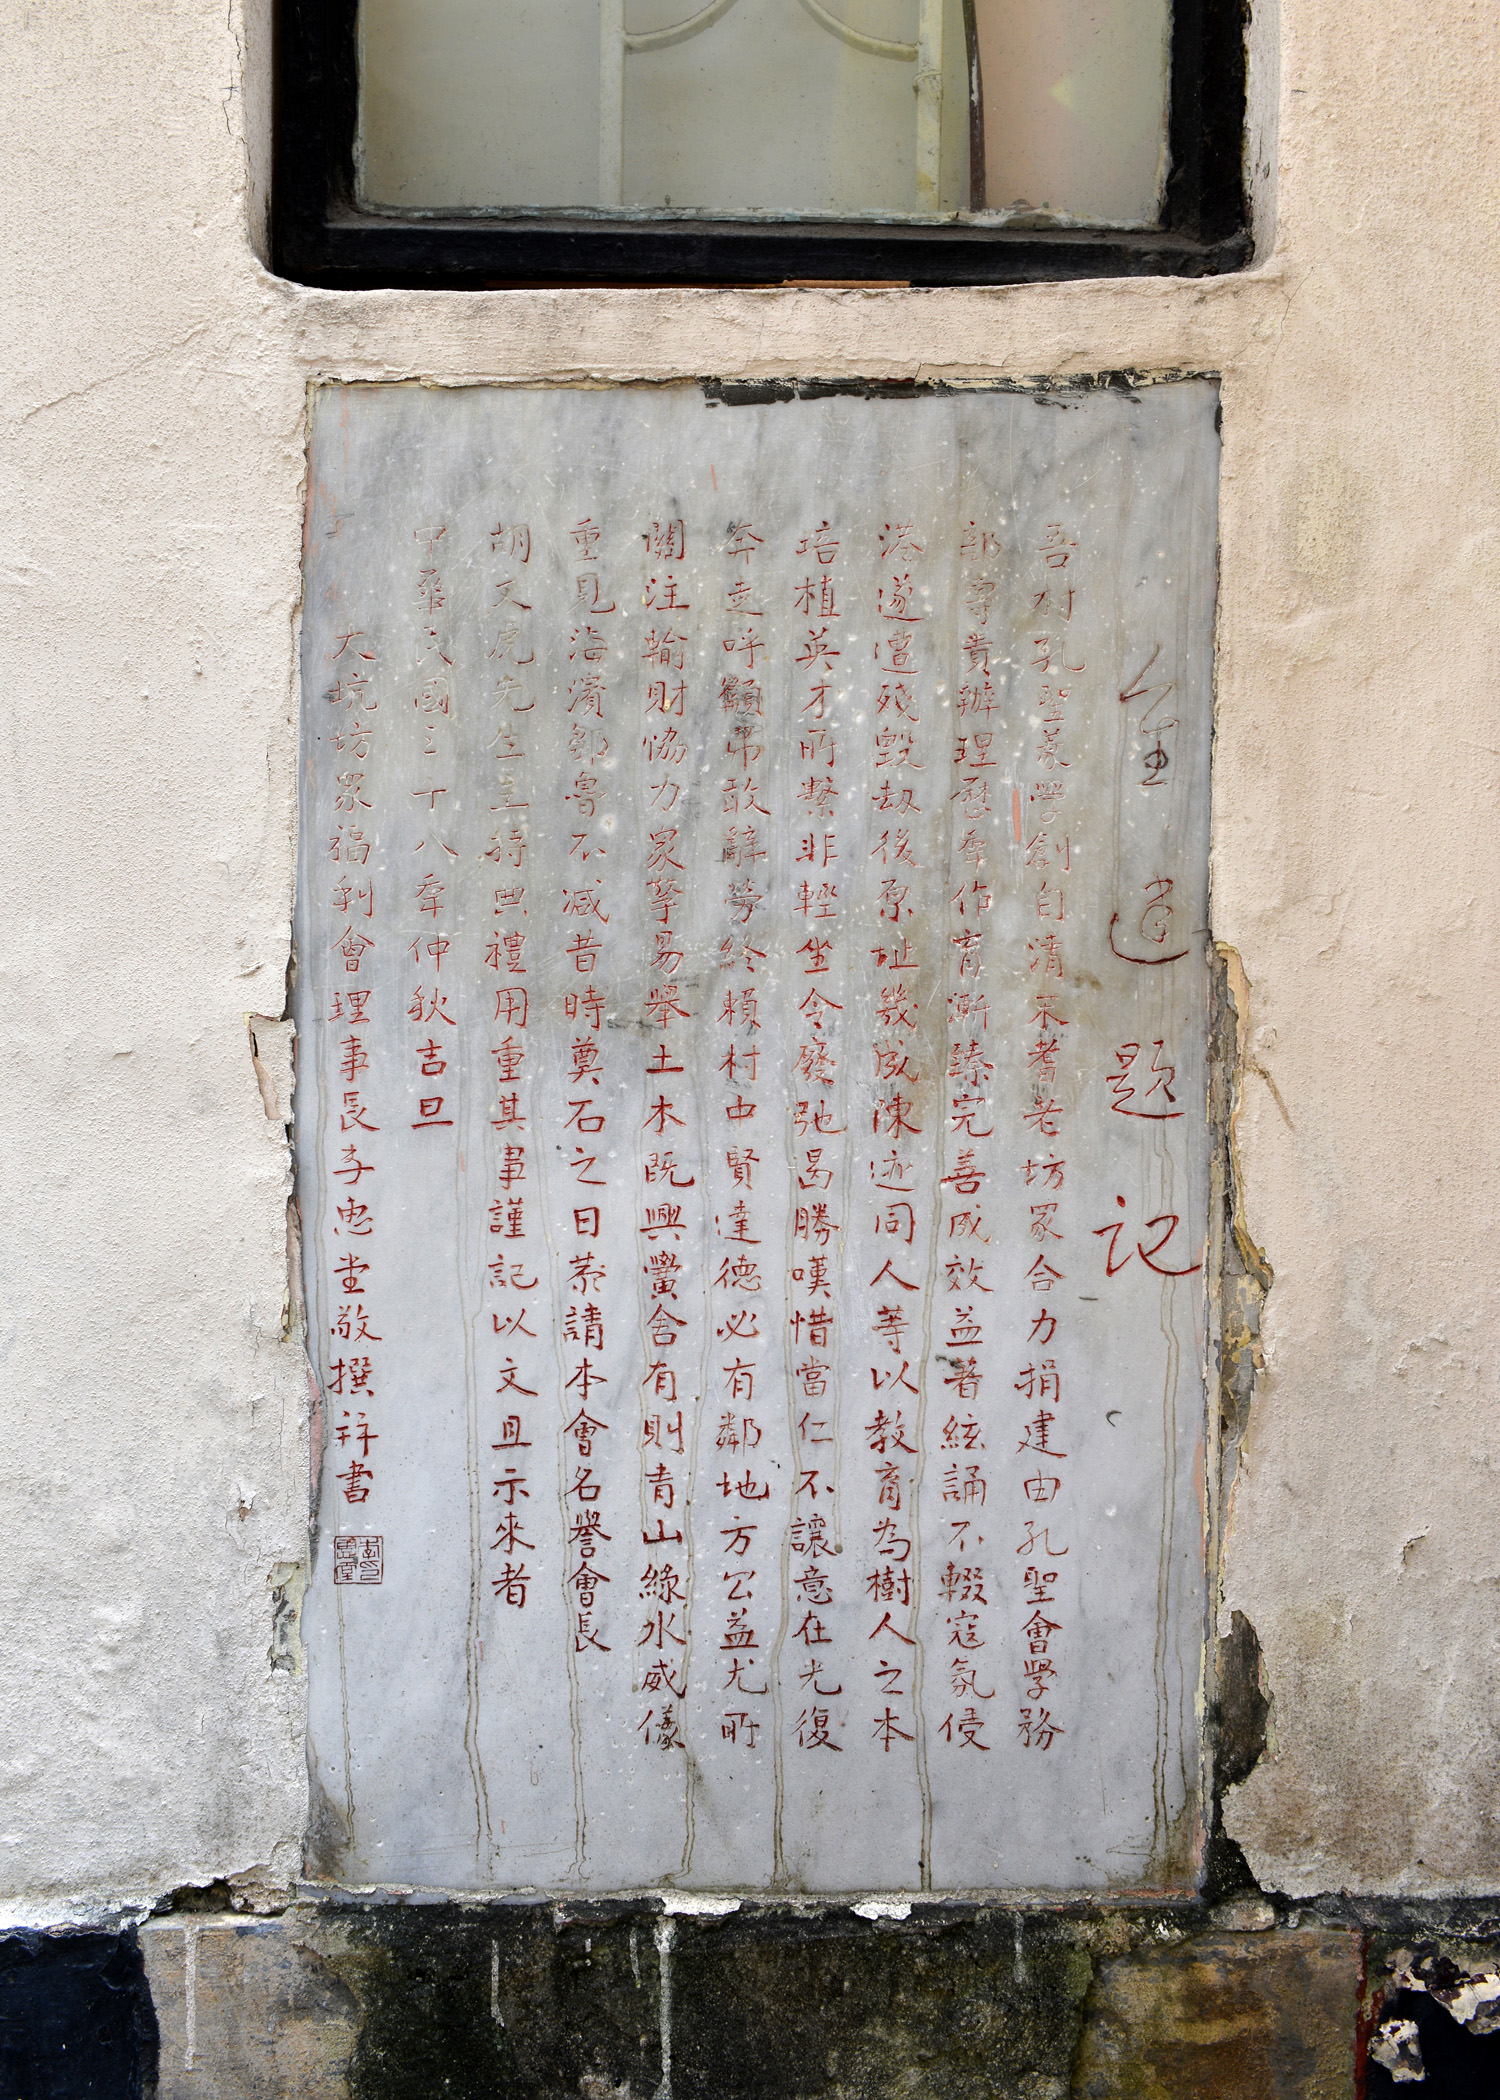 重建題記
吾村孔聖義學創自清末耆老坊眾合力捐建由孔聖會學務
部專責辦理歷年作育漸臻完善成效益著絃誦不輟寇氛侵
港遂遭殘毀劫後原址幾成陳迹同人等以教育為樹人之本
培植英才所繫非輕坐令廢弛曷勝嘆惜當仁不讓意在光復
奔走呼籲吊敢辭勞終賴村中賢達德必有鄰地方公益尤所
關注輸財協力眾擎易舉土木既興黌舍有則青山綠水威儀
重見海濱鄒魯不減昔時奠石之日恭請本會名譽會長
胡文虎先生主持典禮用重其事謹記以文且示來者
中華民國三十八年仲秋吉旦
大坑坊眾福利會理事長李惠堂敬撰并書